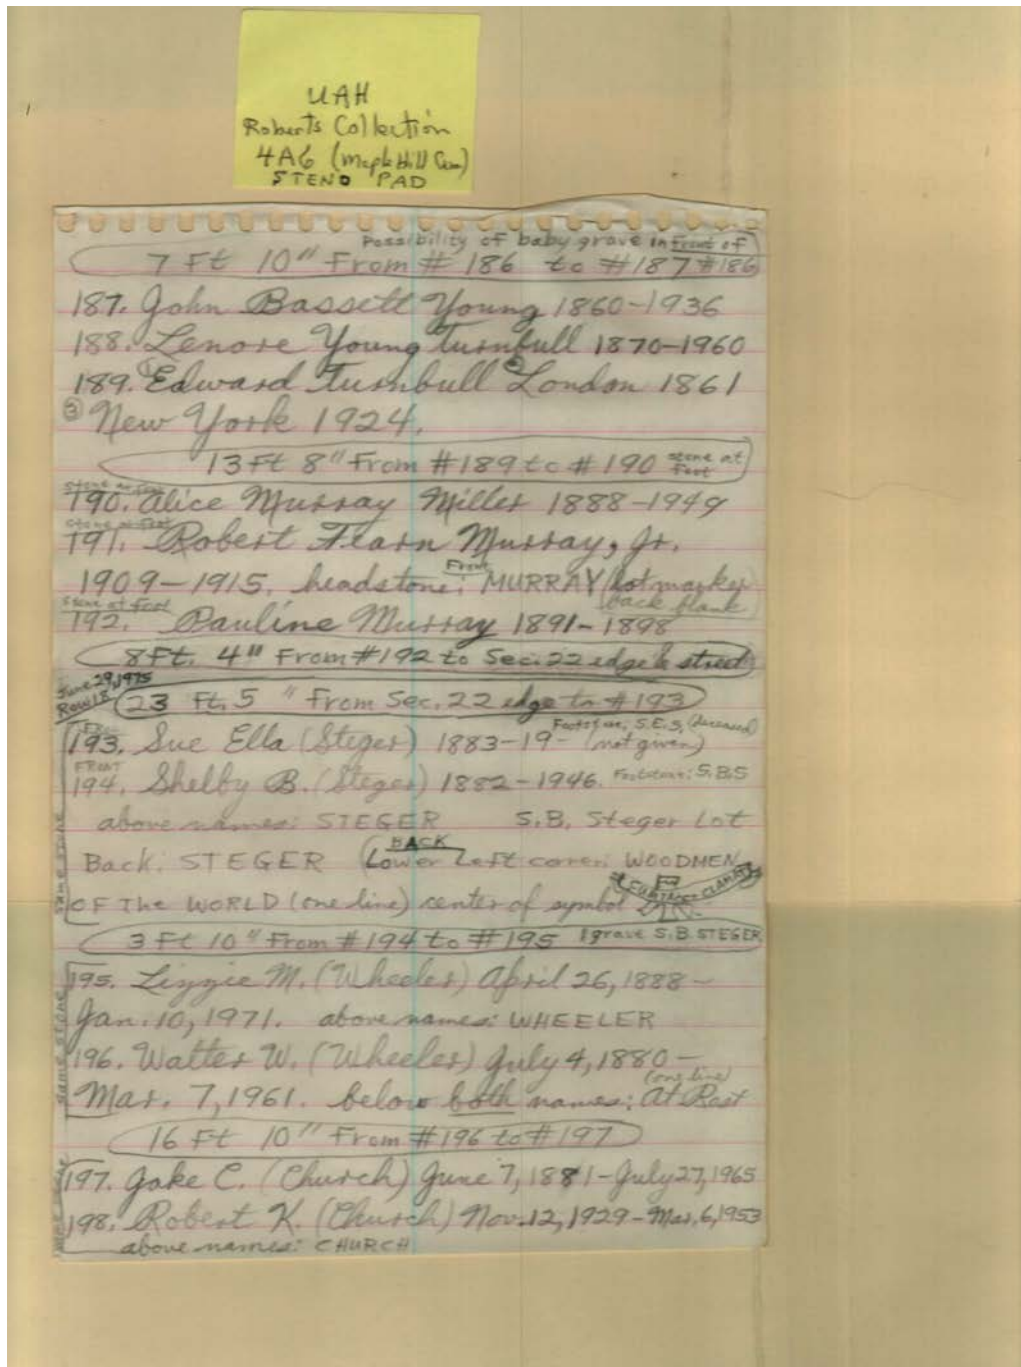 UAH
Roberts Collection
4A6 (Maple Hill Cem)
STENO PAD
Possibility of baby grave in front of
7 Ft 10" From # 186 to #187 #186
187. John Bassett Young 1860-1936
188. Lenore Young Turnbull 1870-1960
189. ① Edward Turnbull ② London 1861
③ New York 1924.
13 Ft 8" From #189 to #190 stone at foot
Stone at foot
190. Alice Murray Miller 1888-1949
Stone at foot
191. Robert Fearn Murray, Jr.
1909-1915. headstone: Front MURRAY (lot marker
back blank)
Stone at foot
192. Pauline Murray 1891-1898
8 Ft. 4" From #192 to Sec. 22 edge & street
June 29, 1975
Row 18
23 Ft. 5" From Sec. 22 edge to #193
Footstone: S.E.S. (deceased)
193. Sue Ella (Steger) 1883-19- (not given)
FRONT
194. Shelby B. (Steger) 1882-1946. Footstone: S.B.S
above names: STEGER S.B. Steger Lot
Back: STEGER (BACK Lower Left corner: WOODMEN
OF THE WORLD (one line) center of symbol
SAME STONE
3 Ft 10" From #194 to #195 1 grave S.B. STEGER
195. Lizzie M. (Wheeler) April 26, 1888-
Jan. 10, 1971. above names: WHEELER
196. Walter W. (Wheeler) July 4, 1880-
(one line)
Mar. 7, 1961. below both names: At Rest
SAME STONE
16 Ft 10" From #196 to #197
197. Jake C. (Church) June 7, 1881-July 27, 1965
198. Robert K. (Church) Nov. 12, 1929-Mar. 6, 1953
above names: CHURCH
SAME STONE